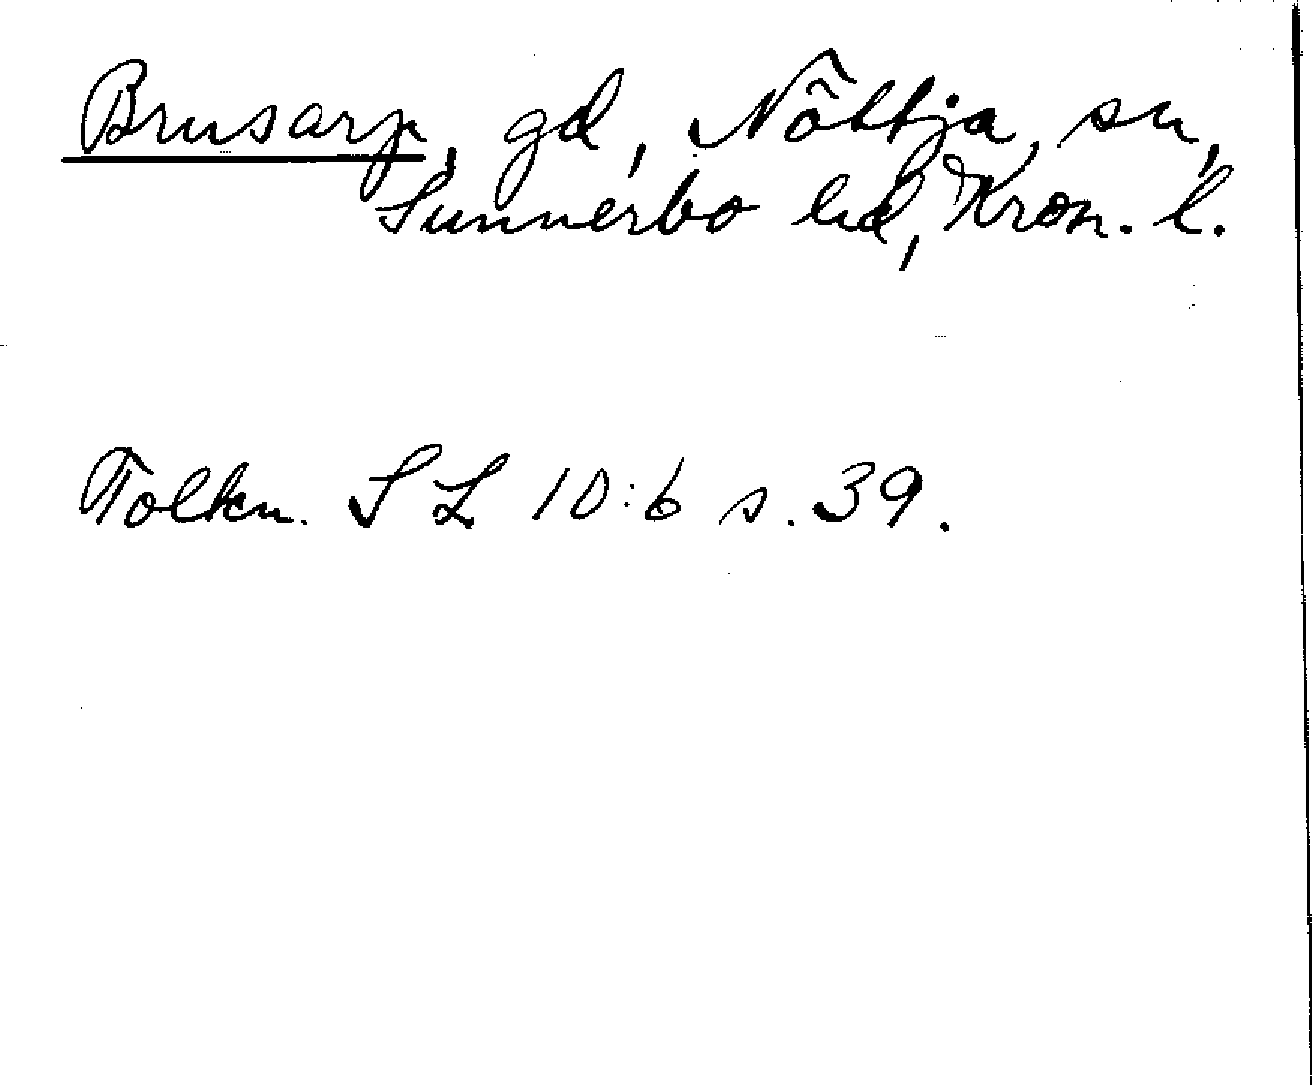 Brusarp, gd, Nöttja sn,
Sunnerbo hd, Kron. l.
Tolkn. SL 10:6 s. 39.